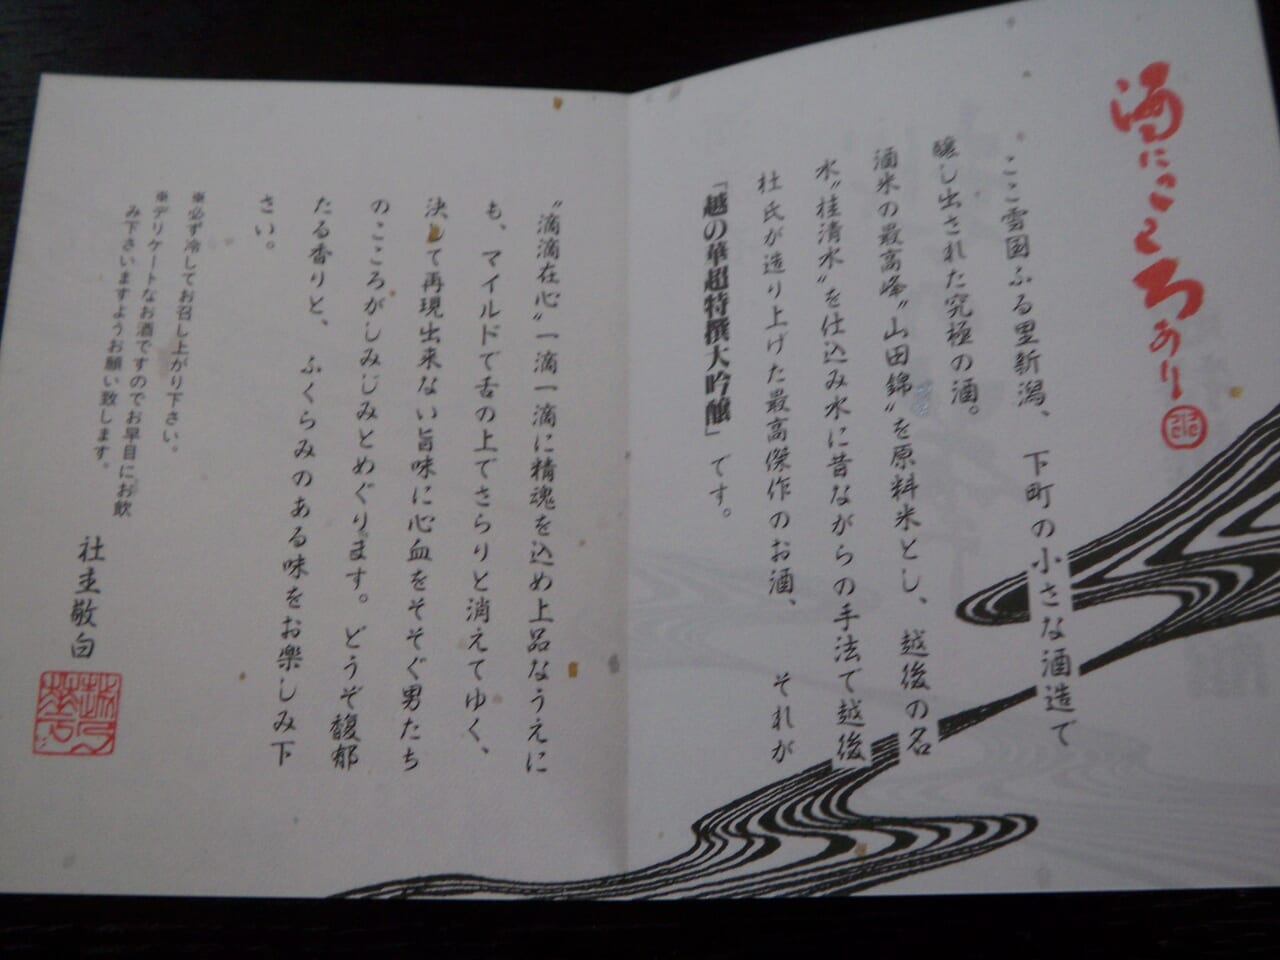 酒にこころあり
ここ雪国ふる里新潟、下町の小さな酒造で
醸し出された究極の酒。
酒米の最高峰〝山田錦〟を原料米とし、越後の名
水〝桂清水〟を仕込み水に昔ながらの手法で越後
杜氏が造り上げた最高傑作のお酒、それが
「越の華超特撰大吟醸」です。
〝滴滴在心〟一滴一滴に精魂を込め上品なうえに
も、マイルドで舌の上でさらりと消えてゆく、
決して再現出来ない旨味に心血をそそぐ男たち
のこころがしみじみとめぐります。どうぞ馥郁
たる香りと、ふくらみのある味をお楽しみ下
さい。
※必ず冷してお召し上がり下さい。
※デリケートなお酒ですのでお早目にお飲
み下さいますようお願い致します。
社主敬白